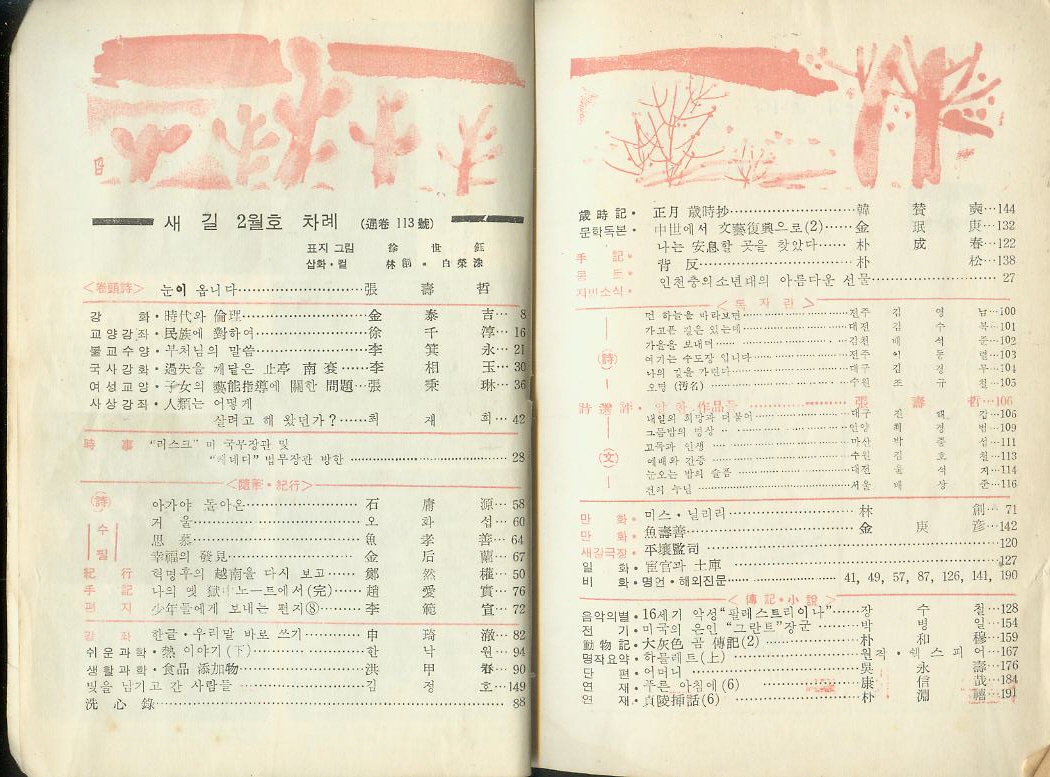 새 길 2월호 차례 (通卷 113號)
표지 그림 徐 世 鈺
삽화·컬 林 · 白榮洙
<卷頭詩> 눈이 옵니다 張 壽 哲
강 화·時代와 倫理 金 泰 吉 8
교양강좌·民族에 對하여 徐 千 淳 16
불교수양·부처님의 말씀 李 箕 永 21
국사강화·過失을 깨달은 止亭 南 袞 李 相 玉 30
여성교양·子女의 藝能指導에 關한 問題 張 秉 琳 36
사상강좌·人類는 어떻게
살려고 해 왔던가? 최 재 희 42
時 事 “러스크” 미 국무장관 및
“케네디” 법무장관 방한 28
<隨筆·紀行>
詩 아가야 돌아온 石 庸 源 58
수 거 울 오 화 섭 60
思 慕 魚 孝 善 64
필 幸福의 發見 金 后 蘭 67
紀 行 혁명후의 越南을 다시 보고 鄭 然 權 50
手 記 나의 옛 獄中노—트에서(完) 趙 愛 實 76
편 지 少年들에게 보내는 편지⑧ 李 範 宣 72
강 좌 한글·우리말 바로 쓰기 申 琦 澈 82
쉬운과학·熱 이야기(下) 한 낙 원 94
생활과학·食品 添加物 洪 甲 春 90
빛을 남기고 간 사람들 김 정 호 149
洗 心 錄 88
歲時記·正月 歲時抄 韓 賛 奭 144
문학독본·中世에서 文藝復興으로(2) 金 珉 庚 132
手 記·나는 安息할 곳을 찾았다 朴 成 春 122
콩 트·背 反 朴 松 138
지방소식·인천충의소년대의 아름다운 선물 27
<독 자 란>
먼 하늘을 바라보면 전주 김 영 남 100
가고픈 길은 있는데 대전 김 수 복 101
가을을 보내며 김천 배 서 준 102
詩 여기는 수도장 입니다 전주 이 동 렬 103
나의 길을 가련다 대구 김 경 무 104
오명 (汚名) 수원 조 규 철 105
特選評·알찬 作品들 張 壽 哲 106
내일의 희망과 더불어 대구 진 해 갑 106
그믐밤의 명상 안양 최 경 범 109
고독과 인생 마산 박 종 섭 111
文 예배와 간증 수원 김 호 천 113
눈오는 밤의 슬픔 대전 윤 석 지 114
전의 누님 서울 매 상 준 116
만 화·미스·닐리리 林 創 71
만 화·魚壽善 金 庚 彦 142
새길극장·平壤監司 120
일 화·宦官과 士庫 127
비 화·명언·해외진문 41, 49, 57, 87, 126, 141, 190
<傳記·小說>
음악의별·16세기 악성“팔레스트리이나” 장 수 철 128
전 기·미국의 은인 “그란트”장군 박 병 일 154
動物記·大灰色 곰 傳記(2) 朴 和 穆 159
명작요약·하믈레트(上) 원작·쉑 스 피 어 167
단 편·어머니 吳 永 壽 176
연 재·푸른 아침에(6) 康 信 哉 184
연 재·貞陵揷話(6) 朴 淵 禧 191